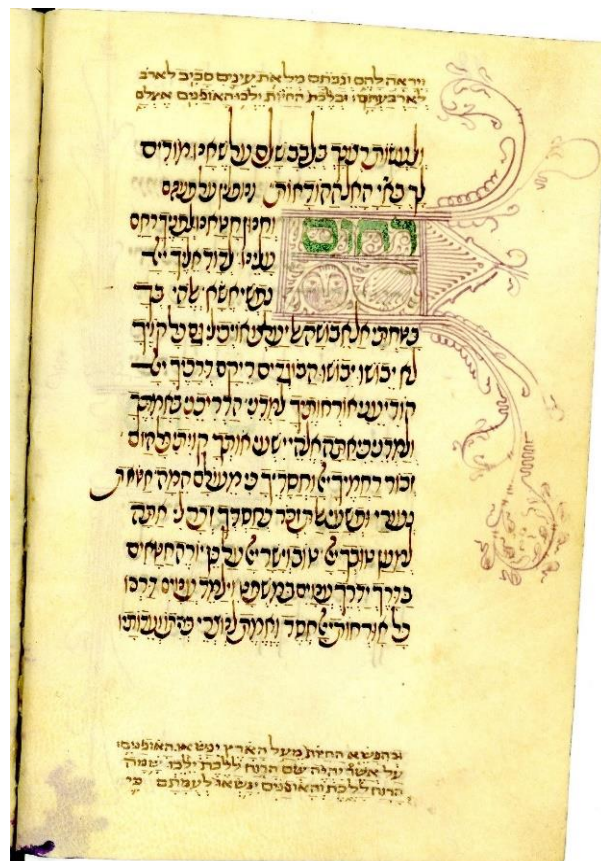 ויראה להם וגבתם מלאת עינים סביב לארב
לארבעתם: ובלכת החיות ילכו האופנים אצלם
ולעשות רצונך בלבב שלם על שאנו מודים
לך ברוך אל ההודאות נופלין על פניהם
רחום
וחנון חטאנו לפניך רחם
עלינו לדוד אליך ייי
נפשי אשא אלהי בך
בטחתי אל אבושה אל יעלצו אויבי לי גם כל קויך
לא יבושו יבושו הבוגדים ריקם דרכיך ייי
הודיעני אורחותיך למדני הדריכני באמתך
ולמדני כי אתה אלהי ישעי אותך קויתי כל היום
זכור רחמיך ייי וחסדיך כי מעולם המה חטאת
נעורי ופשעי אל תזכר כחסדך זכר לי אתה
למען טובך ייי טוב וישר ייי על כן יורה חטאים
בדרך ידרך ענוים במשפט וילמד ענוים דרכו
כל אורחות ייי חסד ואמת לנוצרי בריתו ועדותיו
ובהנשא החיות מעל הארץ ינשאו האופנים:
על אשר יהיה שם הרוח ללכת ילכו שמה
הרוח ללכת והאופנים ינשאו לעמתם כי